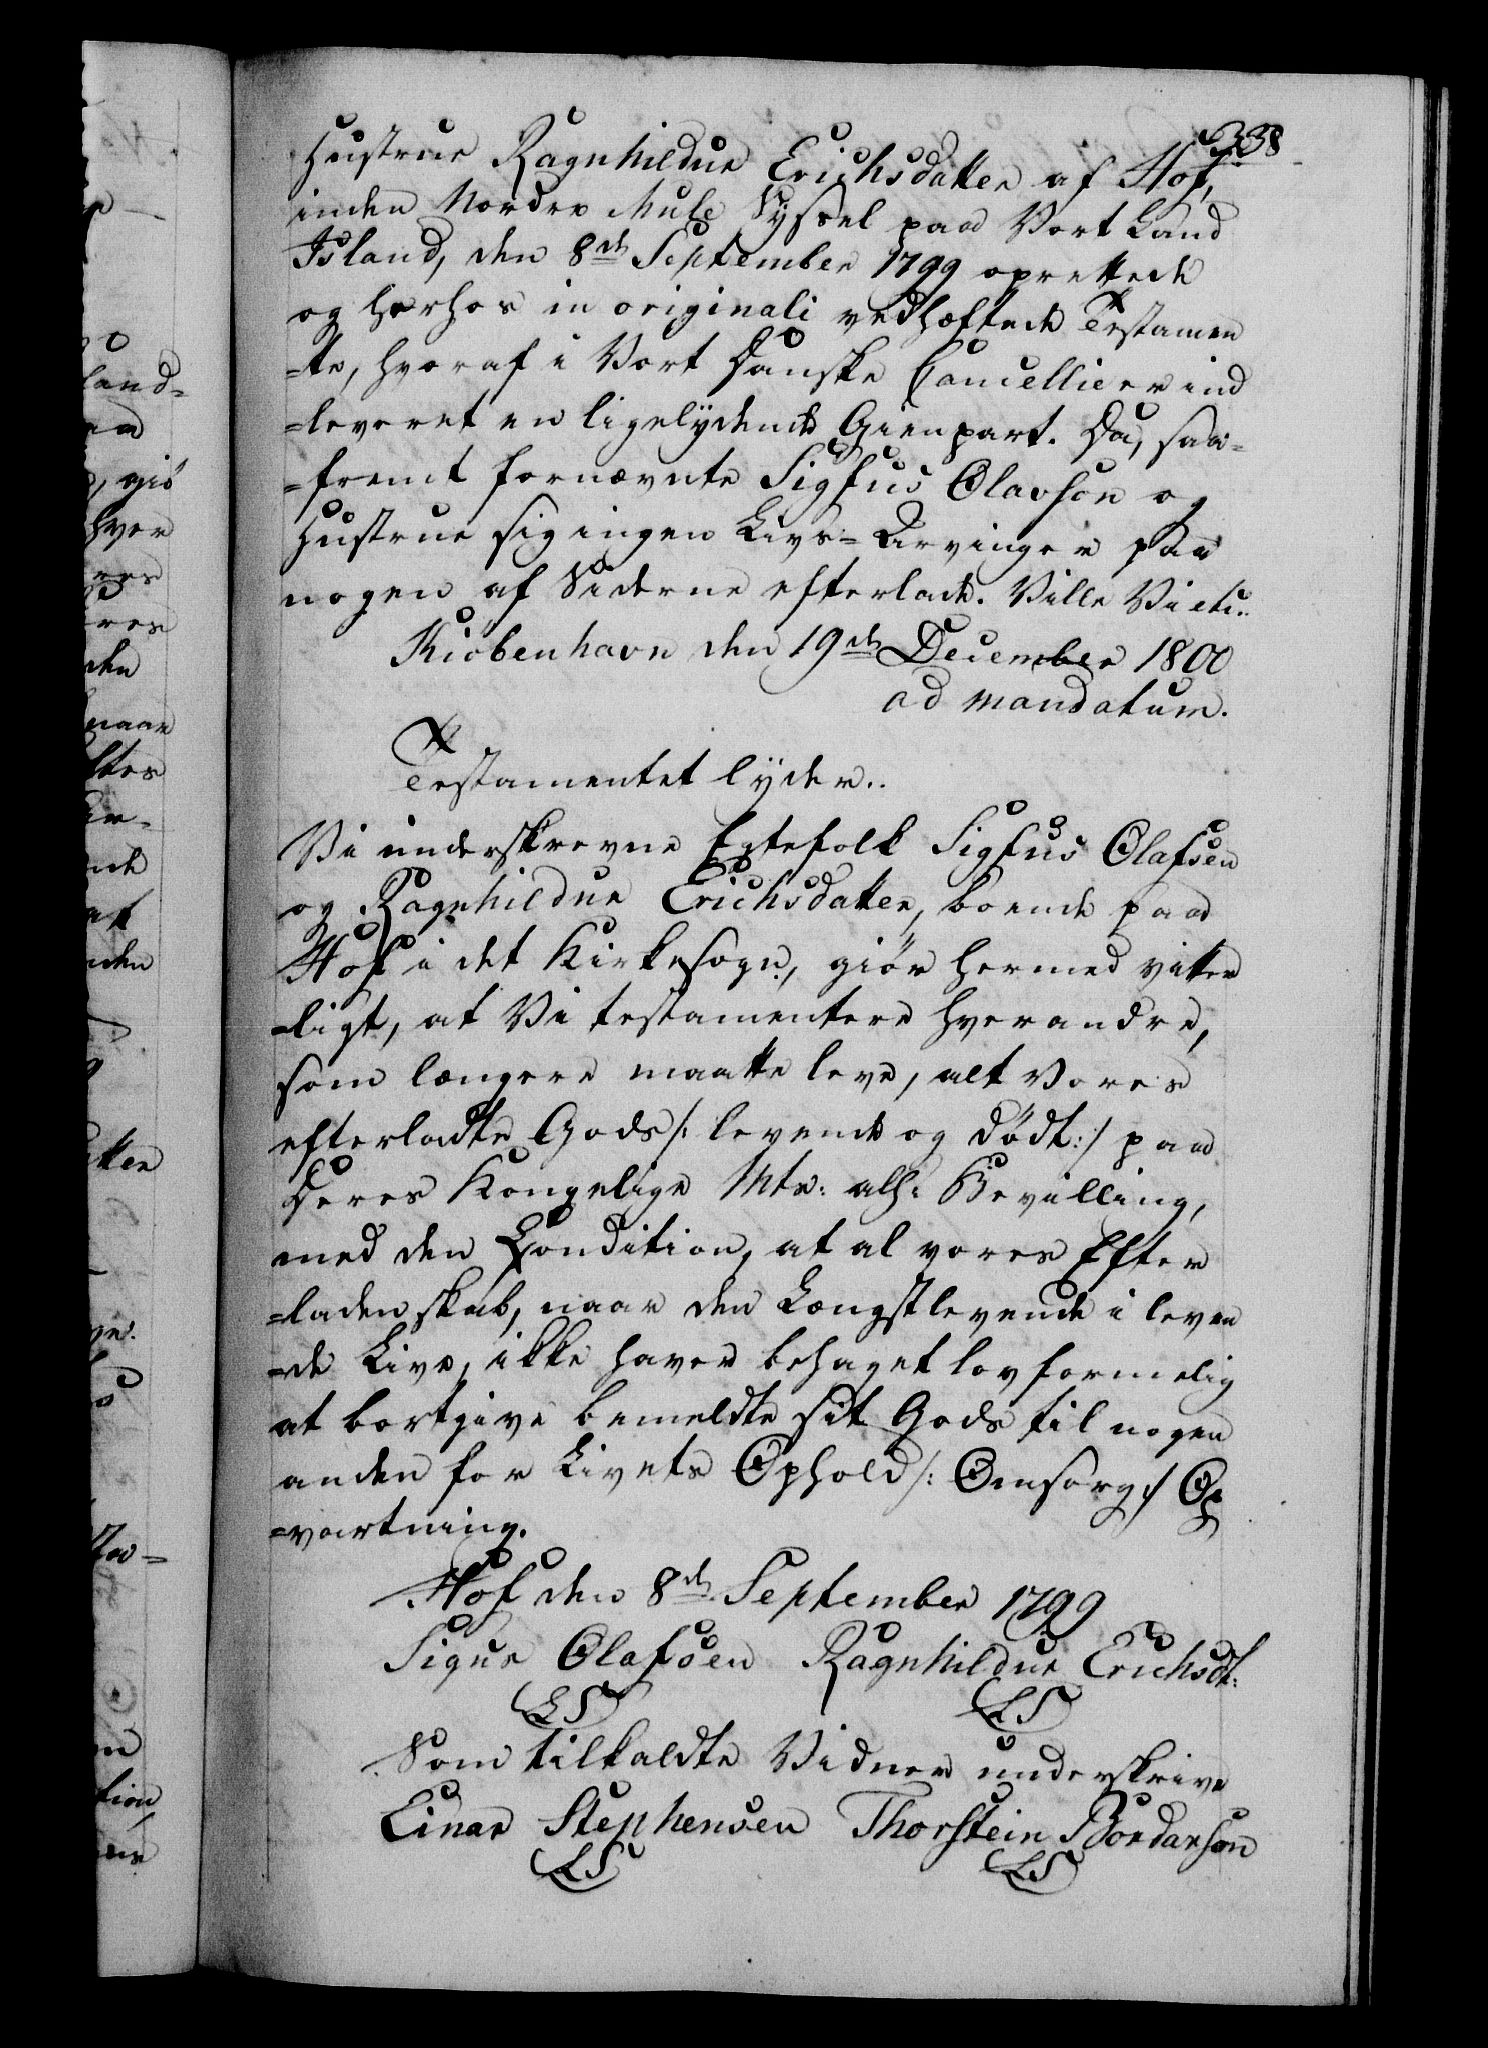 338
Hustrue Ragnhildur Erichsdatter af Hof,
inden Nordre Mule Syssel paa Vort Land
Island, den 8de September 1799 oprettede
og herhos in originali vedhæftede Testamen
=te, hvoraf i Vort Danske Cancellie er ind
=leveret en ligelydende Gienpart. Da, saa=
=fremt fornævnte Sigfus Olavson og
Hustrue sig ingen Livs=Arvinger paa
nogen af Siderne efterlade. Ville Vi etc:
Kiøbenhavn den 19de December 1800
ad mandatum.
Testamentet lyder:
Vi underskrevne Egtefolk Sigfus Olafsen
og Ragnhildur Erichsdatter, boende paa
Hof i det Kirkesogn, giør hermed vitter
=ligt, at Vi testamentere hverandre,
som længere maatte leve, alt Vores
efterladte Gods /: levende og dödt :/ paa
Deres Kongelige Mts: allh: Bevilling,
med den Condition, at al vores Efter
=ladenskab, naar den Længstlevende i leven
=de Live, ikke haver behaget lovformelig
at bortgive bemeldte sit Gods til nogen
anden for Livets Ophold /: Omsorg :/ Op
=vartning.
Hof den 8de September 1799
Sigus Olafsen Ragnhildur Erichsdt:
(LS) (LS)
Som tilkaldte Vidner underskrive
Einar Stephensen Thorstein Bordarson
(LS) (LS)